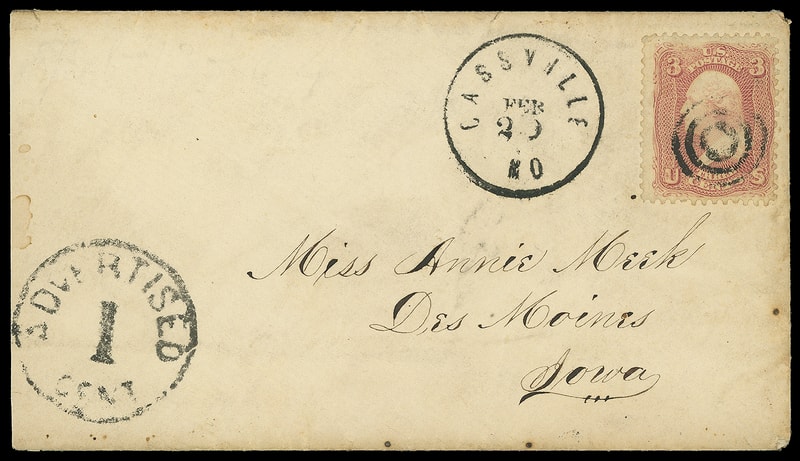 CASSVILLE
FEB
MO
3 U.S. 3
POSTAGE
U S
Miss Annie Meek
Des Moines
Iowa
ADVERTISED
1
CENT